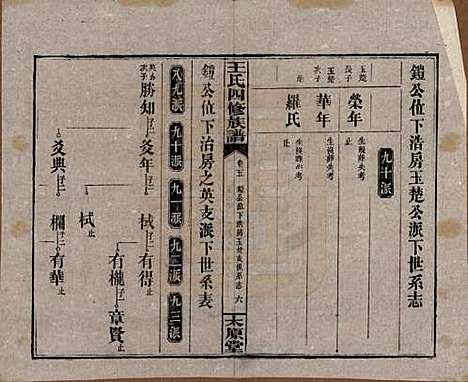 鎧公位下浩房玉楚公派下世系志
九十派
玉楚長子
榮年
生歿葬失考
玉楚次子
華年
生歿葬失考
羅氏
生歿葬失考
王氏四修族譜
卷五
六
太原堂
鎧公位下治房之英支派下世系表
八九派
九十派
九一派
九二派
九三派
次子
勝知
子二
爻年
子一
栻
子一
有得
止
有櫳
子一
章賢
止
爻興
子二
栻
止
欄
子一
有華
止